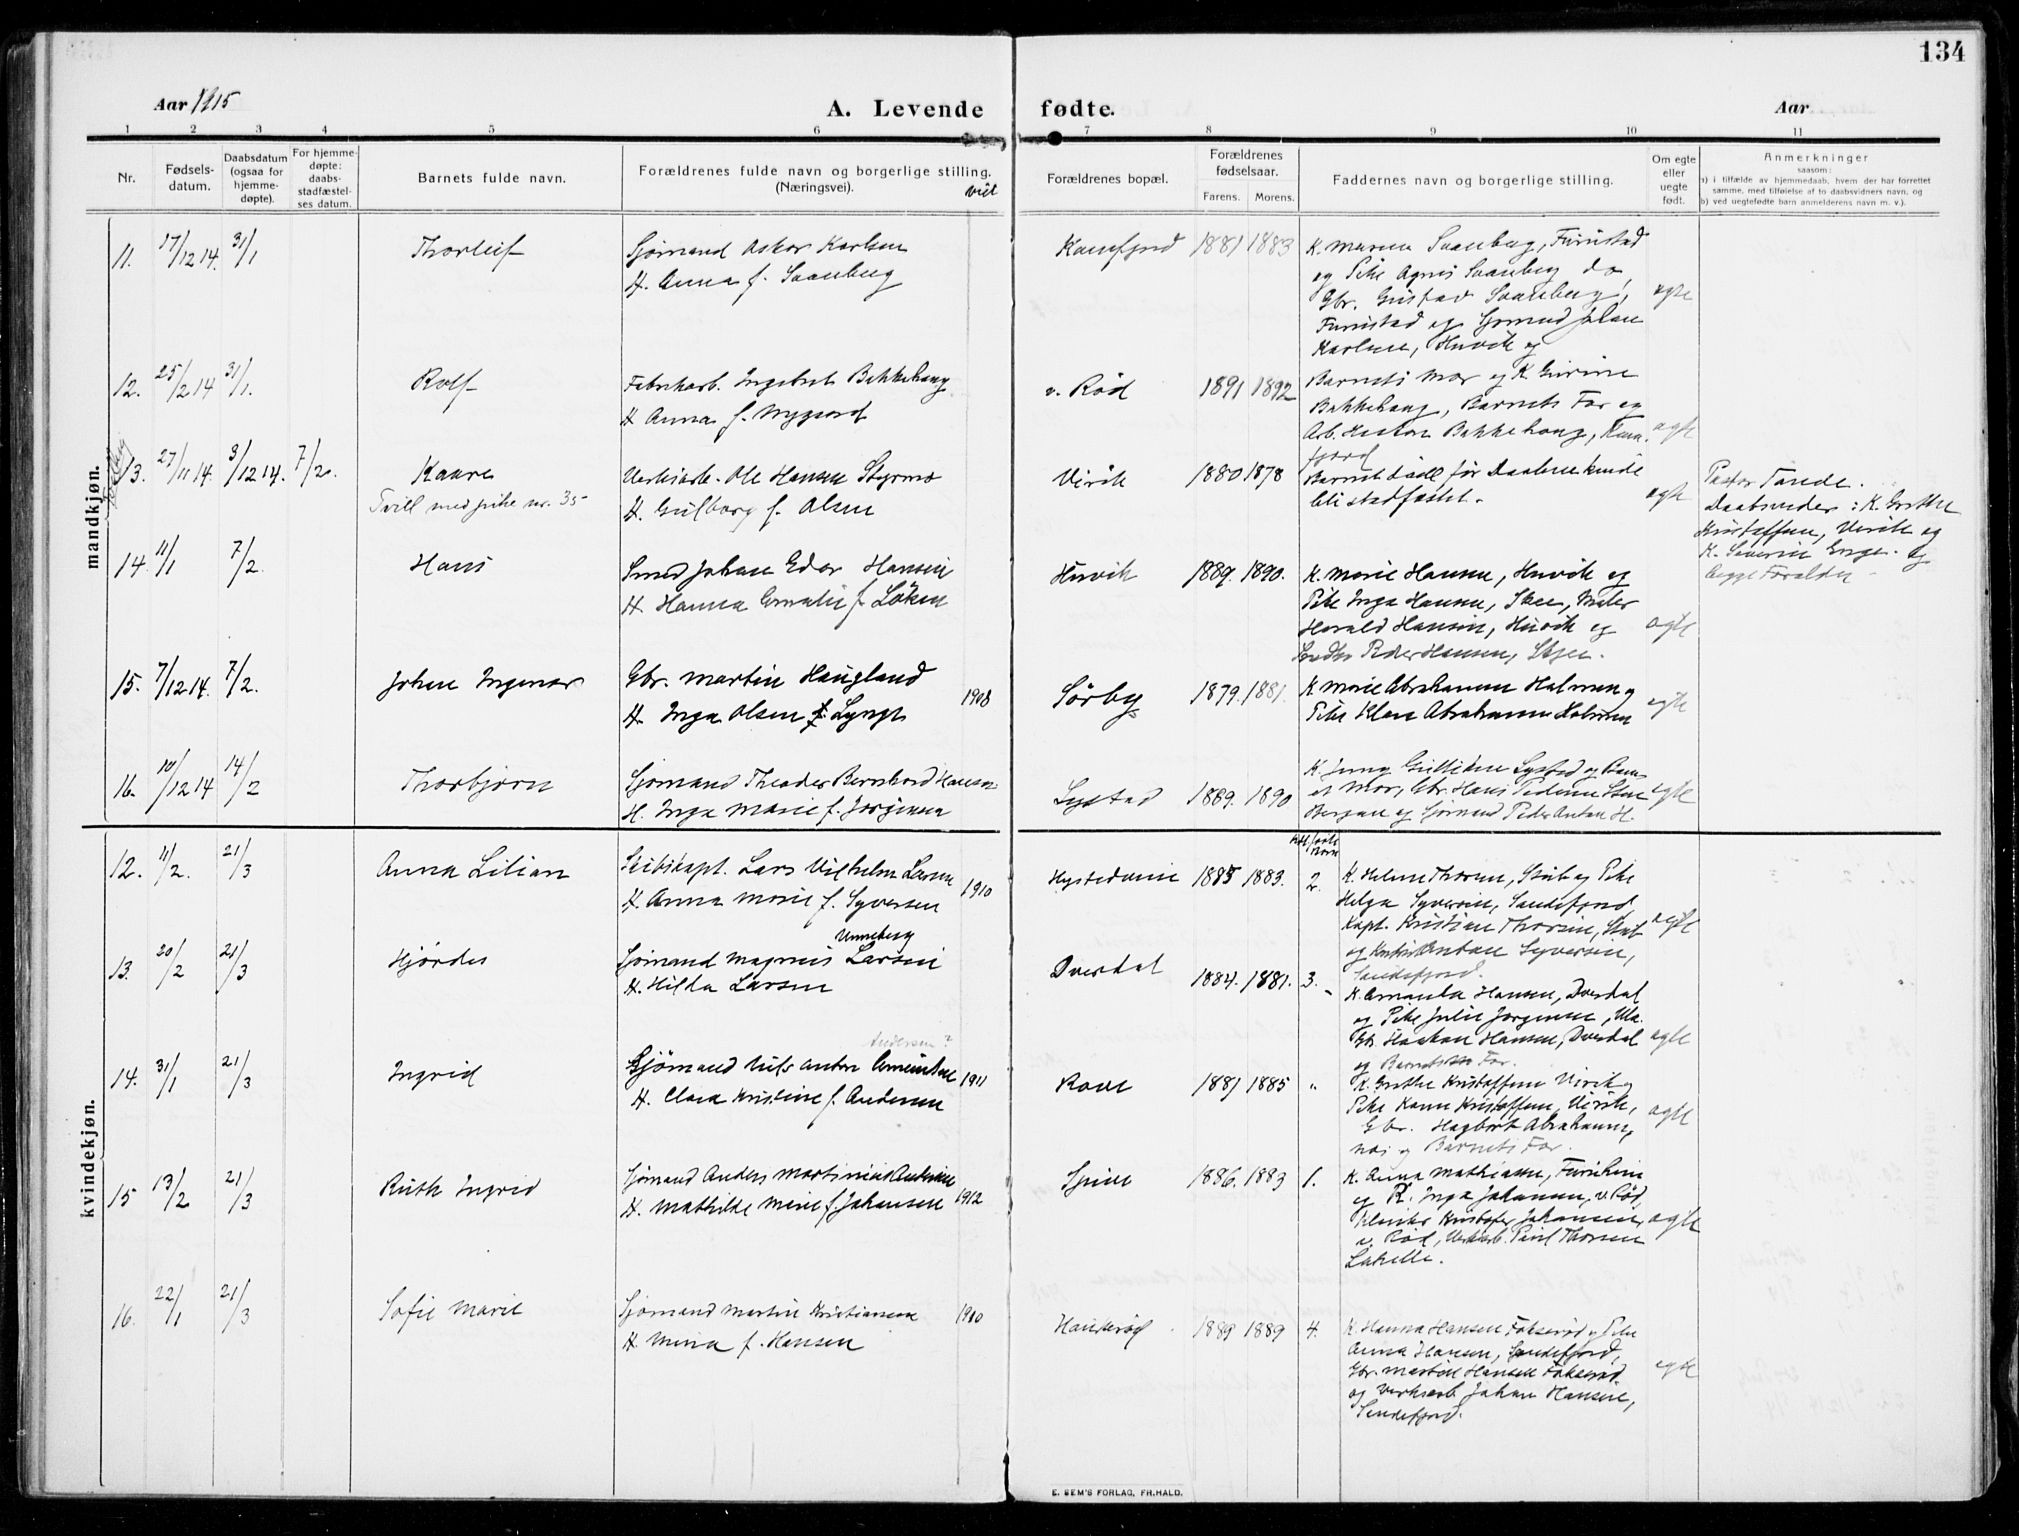 134
Aar 1915
A. Levende fødte.
Aar
1 2 3 4 5 6 7 8 9 10 11
Nr.
Fødsels-
datum.
Daabsdatum
(ogsaa for
hjemme-
døpte).
For hjemme-
døpte:
daabs-
stadfæstel-
ses datum.
Barnets fulde navn.
Forældrenes fulde navn og borgerlige stilling.
(Næringsvei).
viet
Forældrenes bopæl.
Forældrenes
fødselsaar.
Farens. Morens.
Faddernes navn og borgerlige stilling.
Om egte
eller
uegte
født.
Anmerkninger
saasom:
a) i tilfælde av hjemmedaab, hvem der har forrettet
samme, med tilføielse af to daabsvidners navn, og
b) ved uegtefødte barn anmelderens navn m. v.).
mandkjøn.
11. 17/12 14. 31/1 Thorleif
Sjømand Oskar Karlsen
H. Anna f. Svanberg
Kamfjord 1881 1883
og Pike Agnes Svanberg do,
Gbr. Gustav Svanberg,
Furustad og Sjømand Johan
Karlsen, Husvik og
egte
12. 25/2 14 31/1. Rolf
Fabrikarb. Ingebret Bakkehaug
H Anna f. Nygaard
v. Rød 1891 1892
Barnets Mor og K.
Bakkehaug, Barnets Far og
Arb. Bakkehaug, Kam-
fjord
egte
13. 27/11 14. 3/12 14. 7/2. Kaare
Tvill med pike nr. 35
Verksarb. Ole Hansen Styrmo
H. Gulborg f. Olsen
Virik 1880 1878
Barnet døde før Daaben kunde
bli stadfæstet.
egte
Pastor Tande.
Daabsvidner: K. Grethe
Kristoffersen, Virik og
K. Severine og
begge Forældre
14. 11/1 7/2. Hans
Smed Johan Edor Hansen
H. Hanna f. Løken
Husvik 1889. 1890.
K. Marie Hansen, Husvik og
Pike Inga Hansen, Maler
Harald Hansen, Husvik og
Peder Hansen,
egte
15. 7/12 14. 7/2. Johan Ingemar
Gbr. Martin Haugland
H. Inga Olsen f. Lyngt
1908
Sørby 1879. 1881.
K. Marie Abrahamsen Holmen og
Pike Klara Abrahamsen Holmen
egte
16. 10/12 14 14/2 Thorbjørn
Sjømand Theodor Bernhard Hansen
H. Inga Marie f. Jørgensen
Lystad 1889. 1890
K. Jenny Lystad og
Mor, Gbr. Hans Pedersen
og Sjømand Peder Anton H.
egte
kvindekjøn.
12. 11/2. 21/3 Anna Lilian
Skibskapt. Lars Vilhelm Larsen
H. Anna Marie f. Syversen
1910
1885 1883. 2.
K. Helene Thorsen, Stub og Pike
Helga Syversen, Sandefjord
Kapt. Kristian Thorsen, Stub
og Anton Syversen,
Sandefjord.
egte
13. 20/2 21/3 Hjørdis
Unneberg
Sjømand Magnus Larsen
H. Hilda Larsen
Dverdal 1884. 1881. 3.
K. Amanda Hansen, Dverdal
og Pike Julie Jørgensen,
Gb. Haakon Hansen, Dverdal
og Barnets Far.
egte
14. 31/1 21/3 Ingrid
Andersen?
Sjømand Nils Anton
H. Clara Kristine f. Andersen
1911
Rove 1881 1885 "
K. Grethe Kristoffersen Virik og
Pike Karen Kristoffersen, Virik,
Gbr. Hagbart Abrahamsen,
og Barnets Far
egte
15 13/2 21/3 Ruth Ingrid
Sjømand Anders Martinius Andersen
H. Mathilde Marie f. Johansen
1912
1886. 1883 1.
K. Anna Mathiasen,
og K. Inga Johansen, v. Rød,
Kristofer Johansen,
v. Rød, Verksarb. Paul Thorsen
egte
16. 22/1 21/3 Sofie Marie
Sjømand Martin Kristiansen
H. Mina f. Hansen
1910
Haukerød 1889 1889 4.
K. Hanna Hansen Fokserød og Pike
Anna Hansen, Sandefjord,
Gbr. Martin Hansen Fokserød
og Verksarb. Johan Hansen,
Sandefjord.
egte
E. SEM'S FORLAG, FR.HALD.